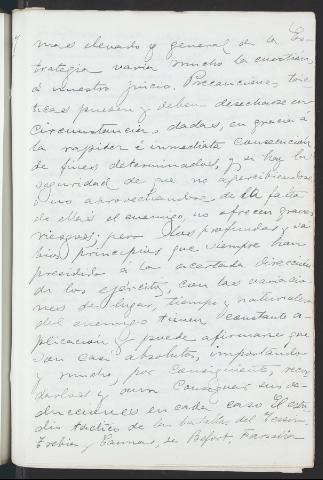 mas elevado y general de la Es-
trategia varia mucho la cuestión
á nuestro juicio. Precauciones tác-
ticas pueden y deben desecharse en
circunstancias dadas, en gracia á
la rapidez é inmediata consecución
de fines determinados, y si hay la
seguridad de que no apercibiendose
o no aprovechandose de la falta
de ellas el enemigo, no ofrecen graves
riesgos; pero los profundos y sa-
bios principios que siempre han
presidido á la acertada dirección
de los ejércitos, con las variacio-
nes de lugar, tiempo y naturaleza
del enemigo tienen constante a-
plicacion y puede afirmarse que
son casi absolutos, importando
y mucho por consiguiente, recor-
darlos y aun conseguir sus de-
ducciones en cada caso El estu-
dio táctico de las batallas del Tessino,
Trebia y Cannas, de Belfort, Farsalia